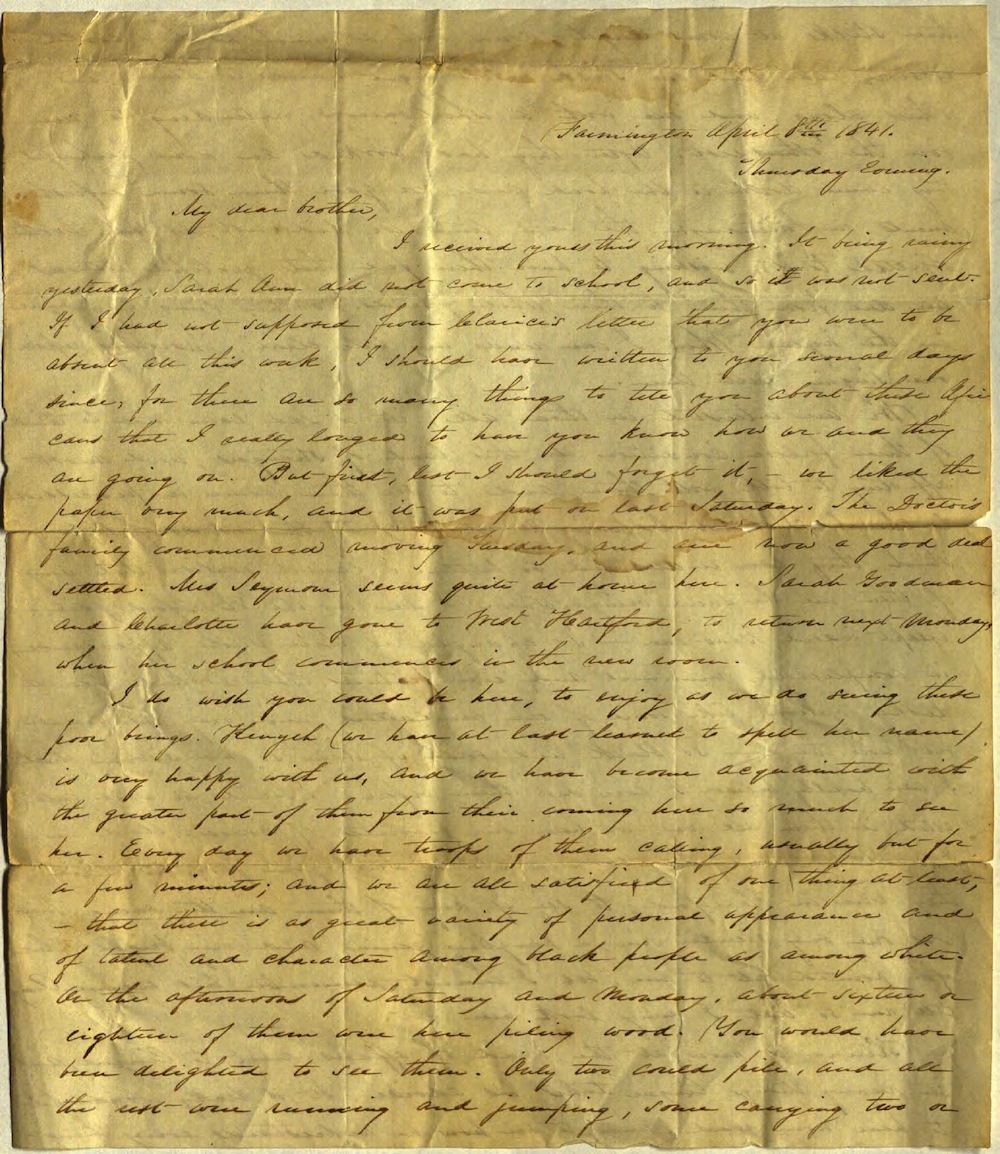 Farmington April 8th 1841.
Thursday Evening.
My dear brother,
I received yours this morning. It being rainy
yesterday, Sarah Ann did not come to school, and so it was not sent.
If I had not supposed from Clarice's letter that you were to be
absent all this week, I should have written to you several days
since, for there are so many things to tell you about these Afri
cans that I really longed to have you know how we and they
are going on. But first, lest I should forget it, – we liked the
paper very much, and it was put on last Saturday. The Doctor's
family commenced moving Tuesday, and are now a good deal
settled. Mrs Seymour seems quite at home here. Sarah Goodman
and Charlotte have gone to West Hartford, to return next Monday,
when her school commences in the new room.
I do wish you could be here, to enjoy as we do seeing these
poor beings. (we have at last learned to spell her name)
is very happy with us, and we have become acquainted with
the greater part of them from their coming here so much to see
her. Every day we have troops of them calling, usually but for
a few minutes; and we are all satisfied of one thing at least,
– that there is as great variety of personal appearance and
of talent and character among black people as among white.
On the afternoons of Saturday and Monday, about sixteen or
eighteen of them were here piling wood. You would have
been delighted to see them. Only two could pile, and all
the rest were running and jumping, some carrying two or